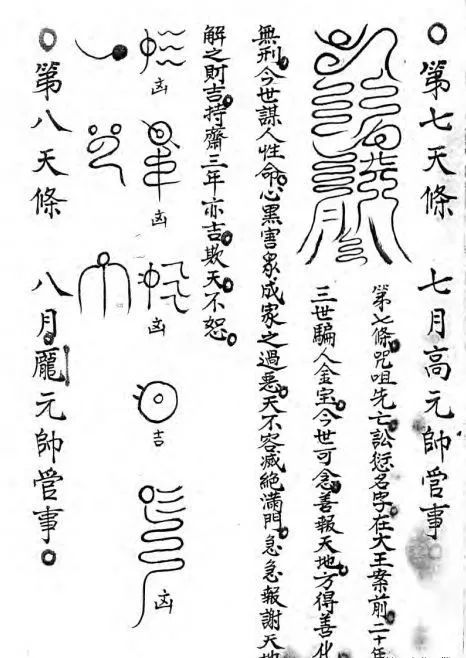 ○第七天條　七月高元帥管事
第七條咒咀先亡訟愆名字在大王案前二十年
三世騙人金宝今世可念善報天地方得善化
無刑今世謀人性命心黑害衆成家之過惡天不容滅絶滿門急急報謝天地
解之則吉持齋三年亦吉欺天不恕
凶
凶
凶
吉
凶
○第八天條　八月龐元帥管事○